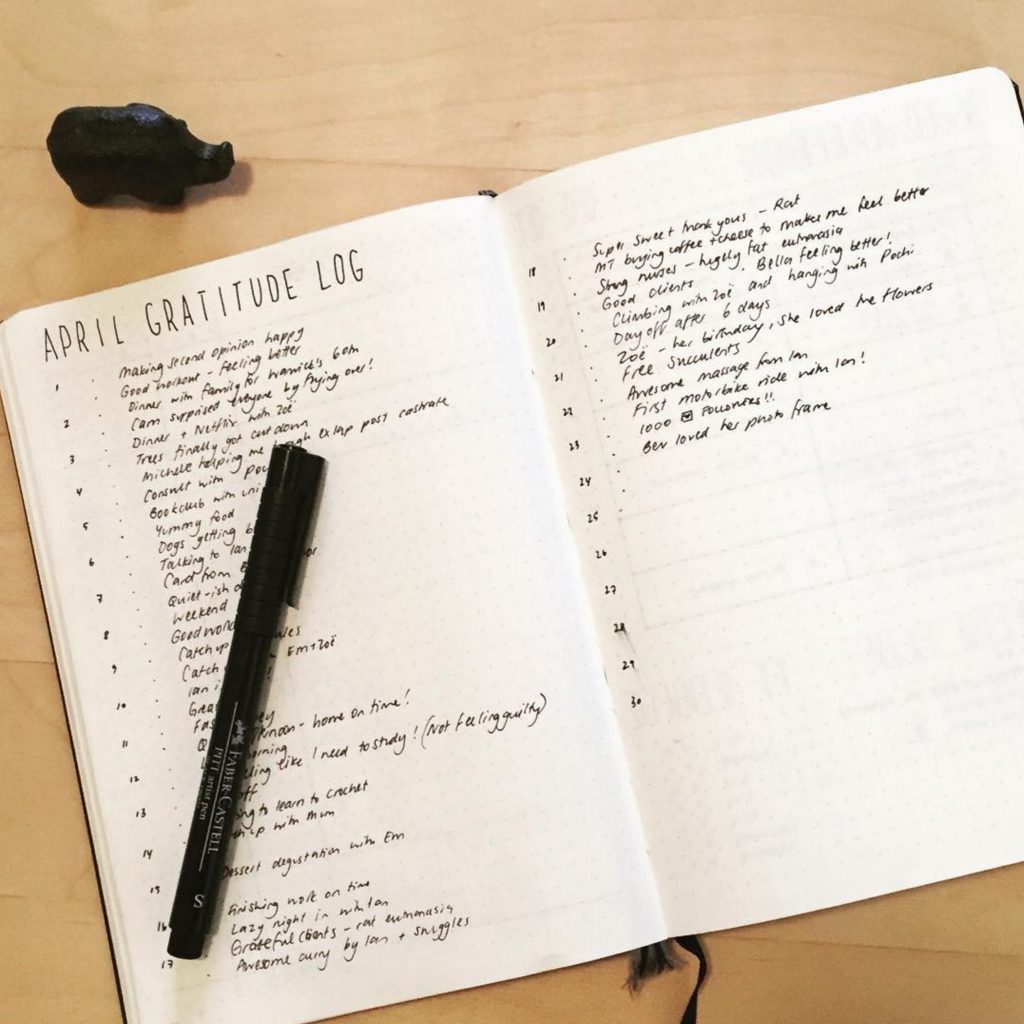 APRIL GRATITUDE LOG
1 . Making second opinion happy
. Good workout - feeling better
2 . Dinner with family for Warwick's 60th
. Cam surprised everyone by flying over!
3 . Dinner + Netflix with Zoë
. Trees finally got cut down
4 . Michelle helping me exlap post castrate
. Consult with
5 . Bookclub with
. Yummy food
6 . Dogs getting
. Talking to Ian
7 . Card from
. Quiet-ish
8 . Weekend
. Good
9 . Catch up
. Catch Em + Zoë
10 . Ian
.
11 .
. - home on time!
12 .
. like I need to study! (Not feeling guilty)
13 .
. to learn to crochet
14 . up with Mum
.
15 . Dessert degustation with Em
.
16 . Finishing work on time
. Lazy night in with Ian
17 . Grateful clients - rat euthanasia
. Awesome curry by Ian + snuggles
FABER-CASTELL
PITT artist pen
S
18 . Super sweet thank yous - Rat
. MT buying coffee + cheese to make me feel better
19 . Strong nurses - hugely fat euthanasia
. Good clients. Bella feeling better!
20 . Climbing with Zoë and hanging with Pochi
. Day off after 6 days
21 . Zoë - her birthday, she loved the flowers
. Free succulents
22 . Awesome massage from Ian
. First motorbike ride with Ian!
23 . 1000 followers!!
. Bev loved her photo frame
24 .
.
25 .
26
27
28
29
30